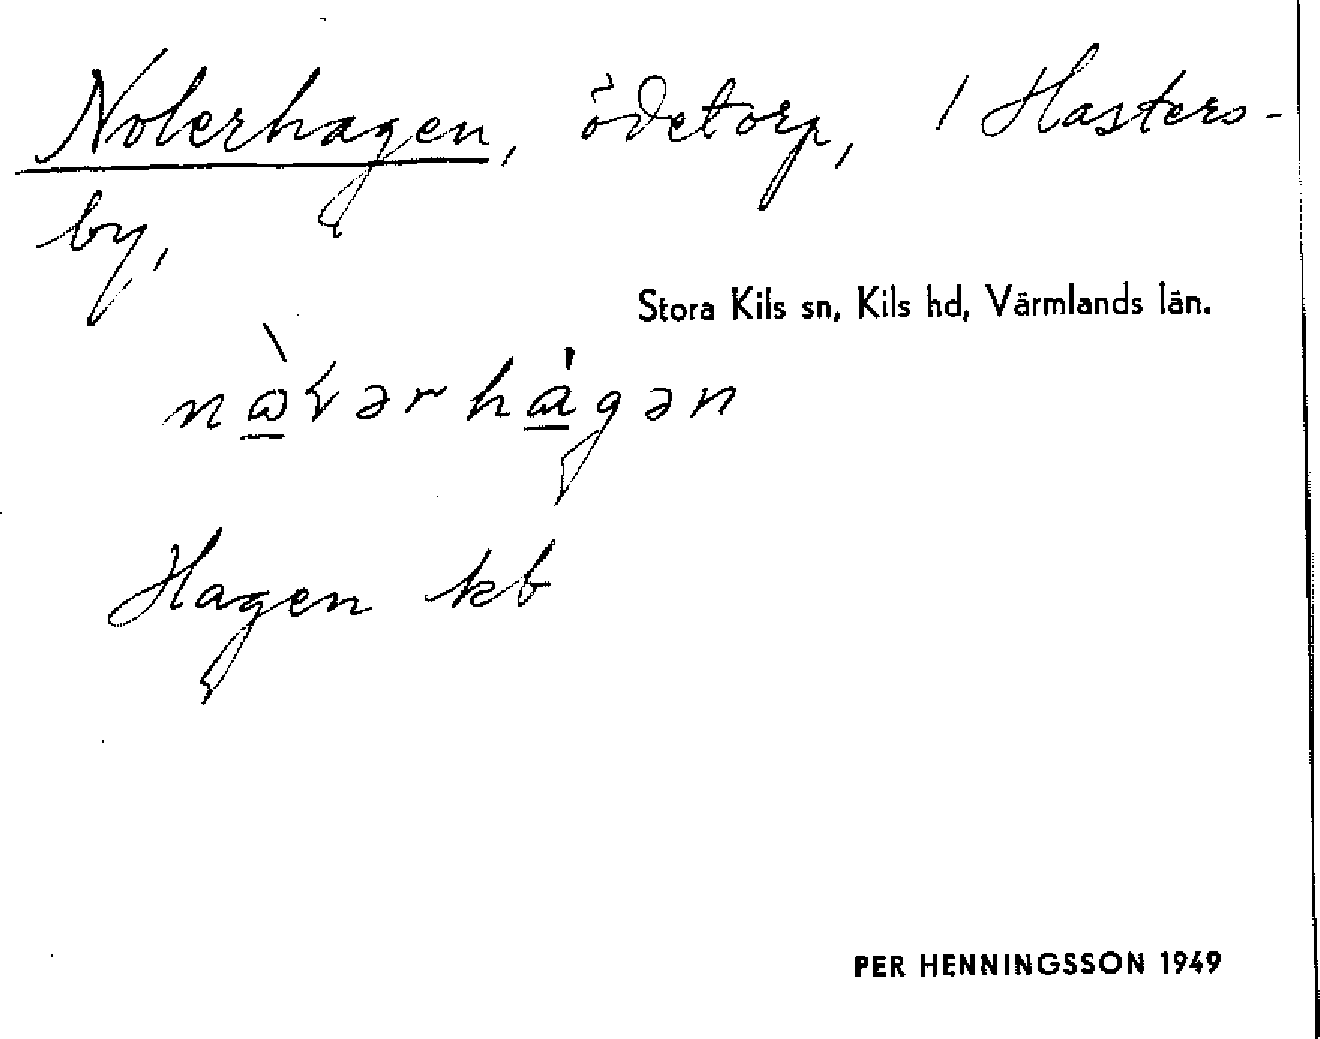 Nolerhagen, ödetorp, / Hasters-
by,
Stora Kils sn, Kils hd, Värmlands län.
Hagen kb
PER HENNINGSSON 1949